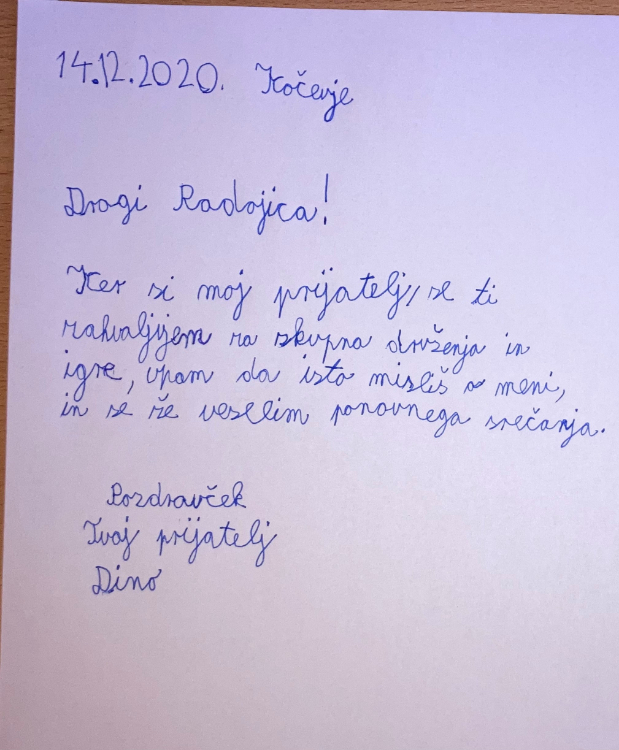 14.12.2020. Kočevje
Dragi Radojica!
Ker si moj prijatelj, se ti
zahvaljujem za skupna druženja in
igre, upam da isto misliš o meni,
in se že veselim ponovnega srečanja.
Pozdravček
Tvoj prijatelj
Dino